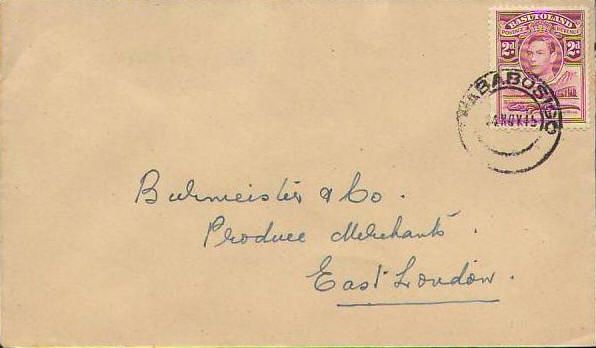 BASUTOLAND
POSTAGE REVENUE
2d 2d
MABABOSIGO
NOV 45
Burmeister & Co.
Produce Merchants.
East London.